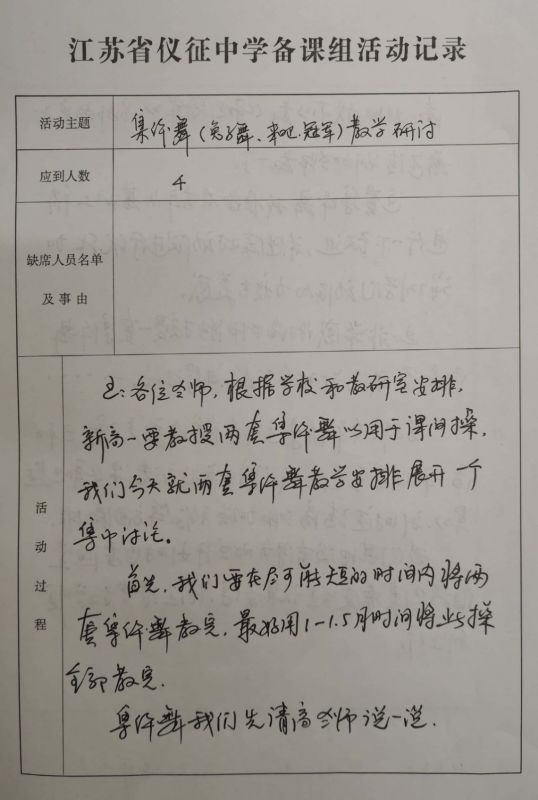 江苏省仪征中学备课组活动记录
活动主题 集体舞(兔子舞、来吧.冠军)教学研讨
应到人数 4
缺席人员名单
及事由
活动过程
王:各位老师,根据学校和教研室安排,
新高一要教授两套集体舞以用于课间操,
我们今天就两套集体舞教学安排展开一个
集中讨论。
首先,我们要在尽可能短的时间内将两
套集体舞教完,最好用1-1.5月时间将此操
全部教完.
集体舞我们先请高老师说一说.